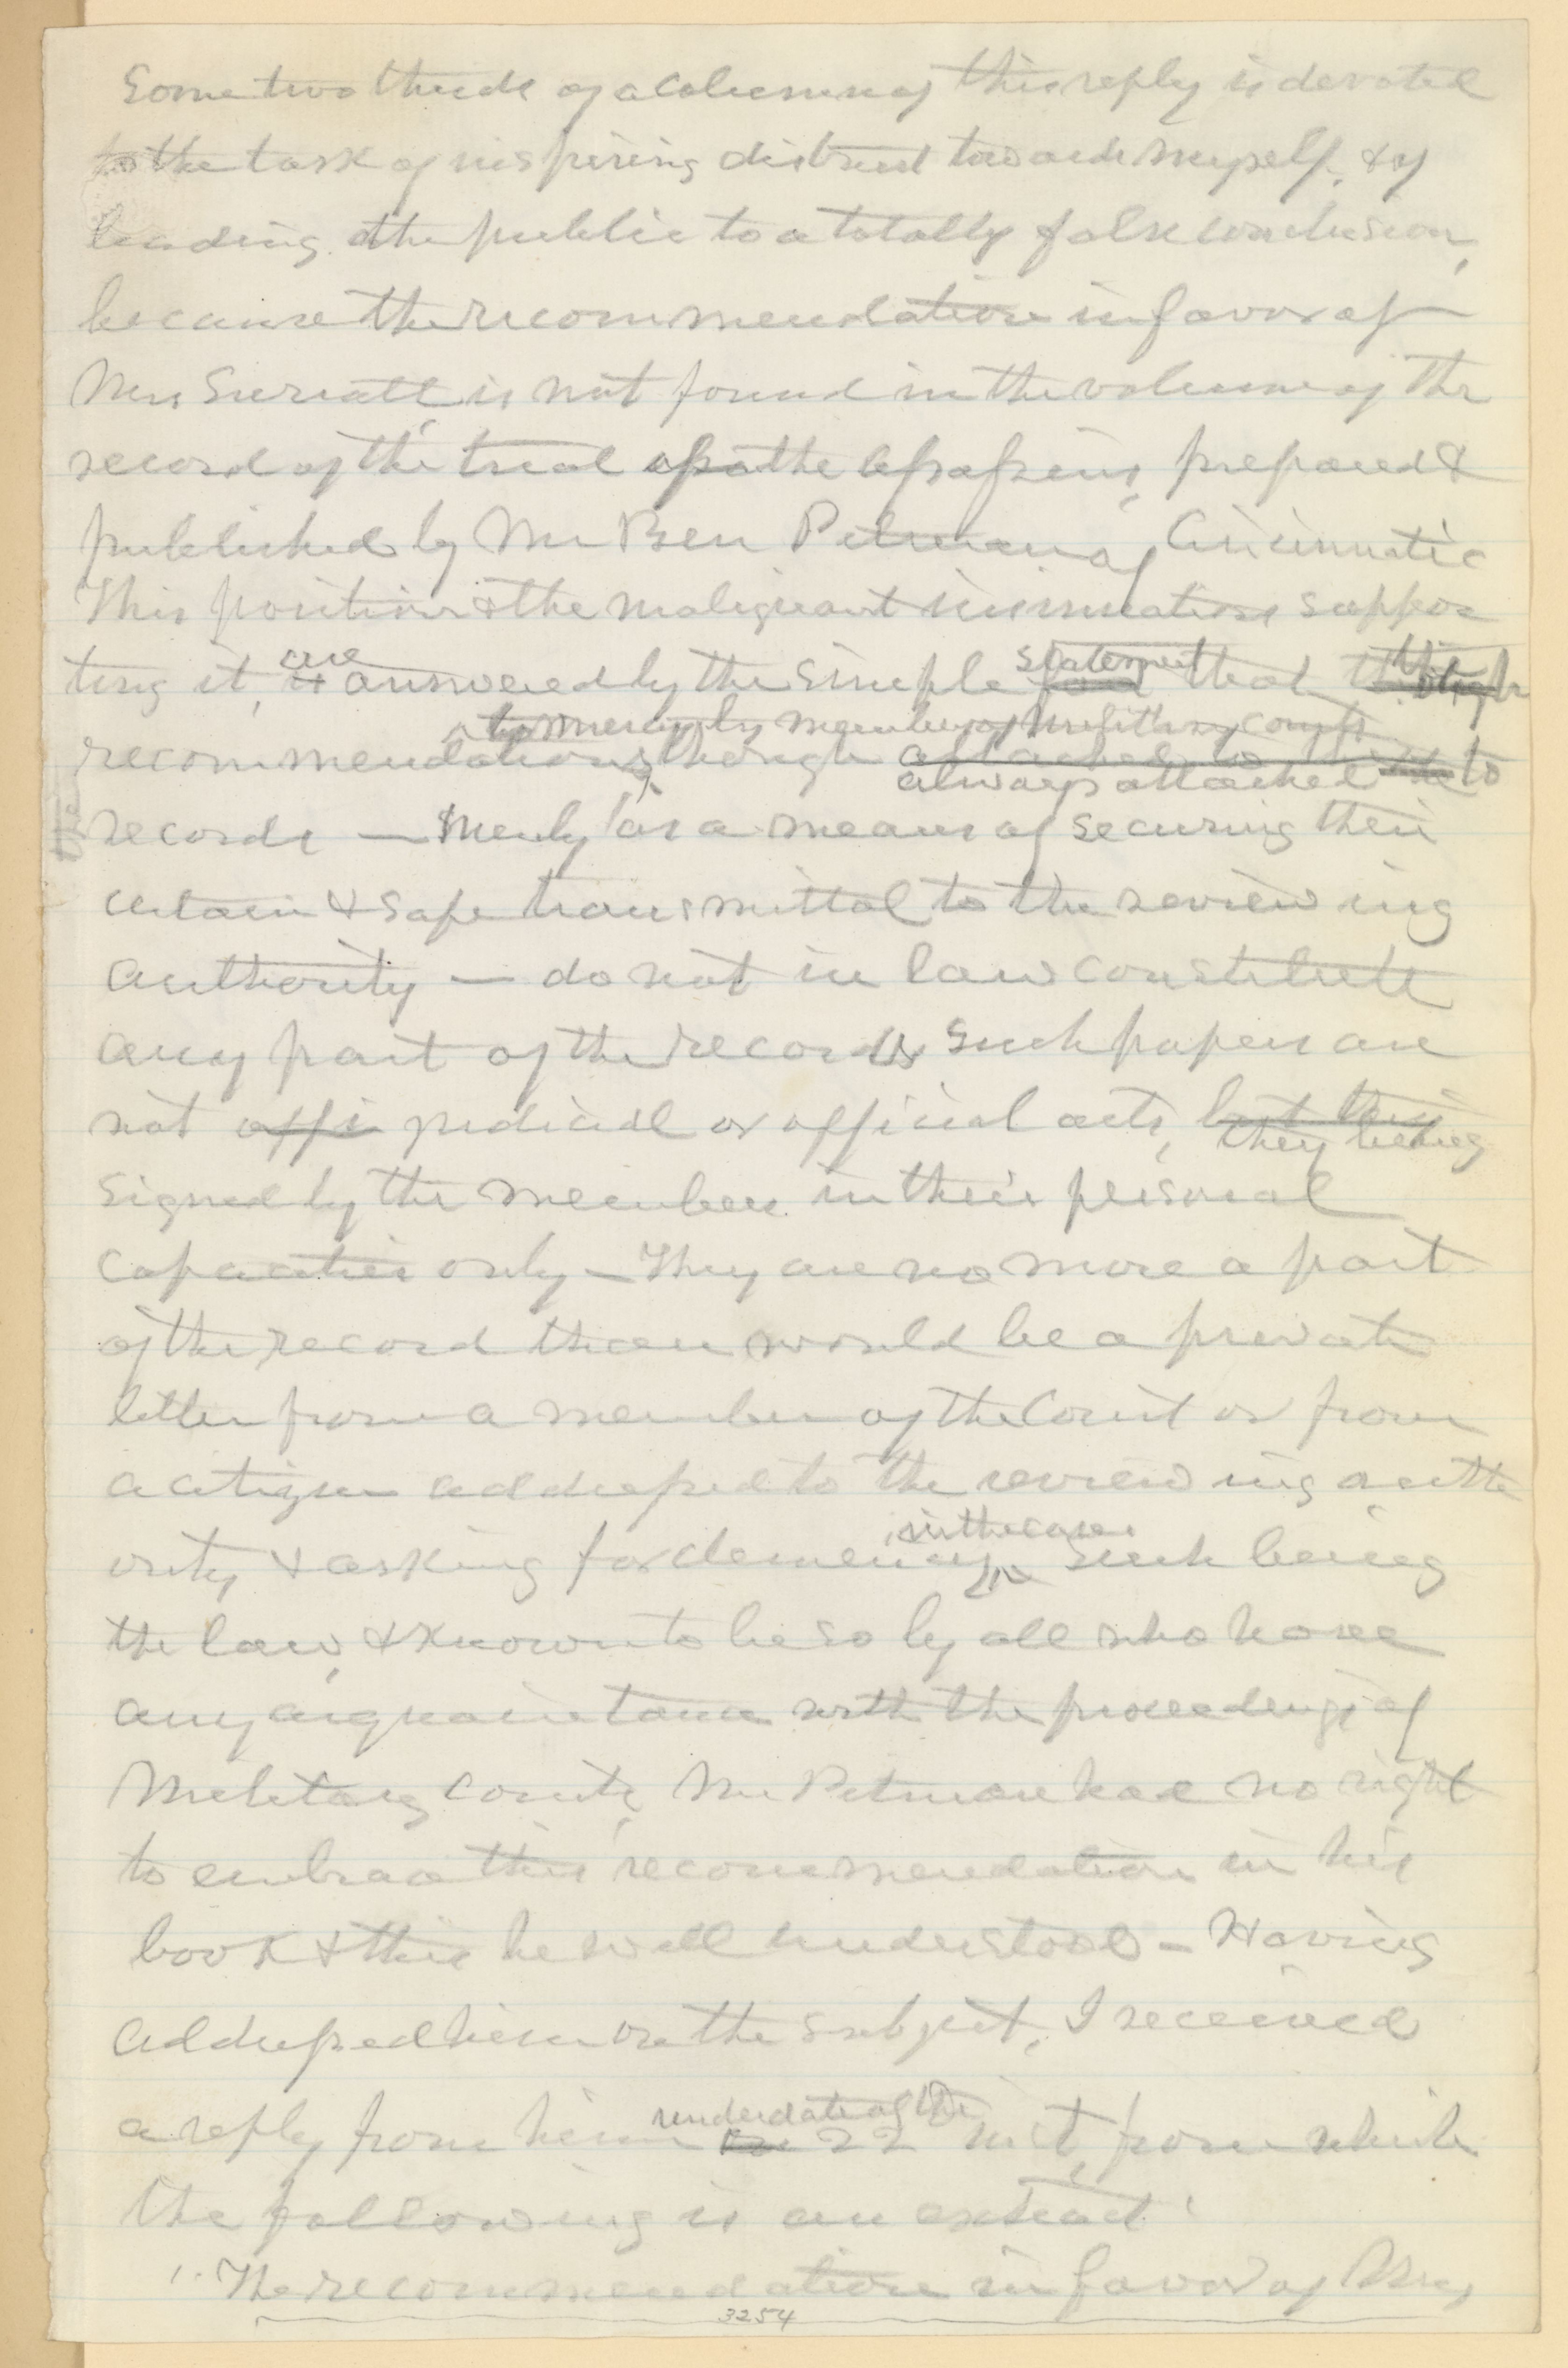 Some two thirds of a column of this reply is devoted
to the task of inspiring distrust towards myself, & of
leading the public to a totally false conclusion,
because the recommendation in favor of
Mrs Surratt, is not found in the volume of the
record of the trial of the assassins, prepared &
published by Mr Ben Pitman of Cincinnati
This position & the malignant insinuations suppor
are statement
ting it, is answered by the simple fact that
to mercy by members of Military courts
recommendations, though attached to
always attached to
the records — merely as a means of securing their
certain & safe transmittal to the reviewing
authority — do not in law constitute
any part of the record. Such papers are
not offi judicial or official acts, but they
they being
signed by the members in their personal
capacities only — They are no more a part
of the record than would be a private
letter from a member of the Court or from
a citizen addressed to the reviewing auth
in the case
ority & asking for clemency. Such being
the law, & known to be so by all who have
any acquaintance with the proceedings of
Military courts, Mr Pitman had no right
to embrace this recommendation in his
book & this he well understood — Having
addressed him on the subject, I received
under date of the
a reply from him on 22 inst, from which
the following is an extract:
"The recommendation in favor of Mrs
3254